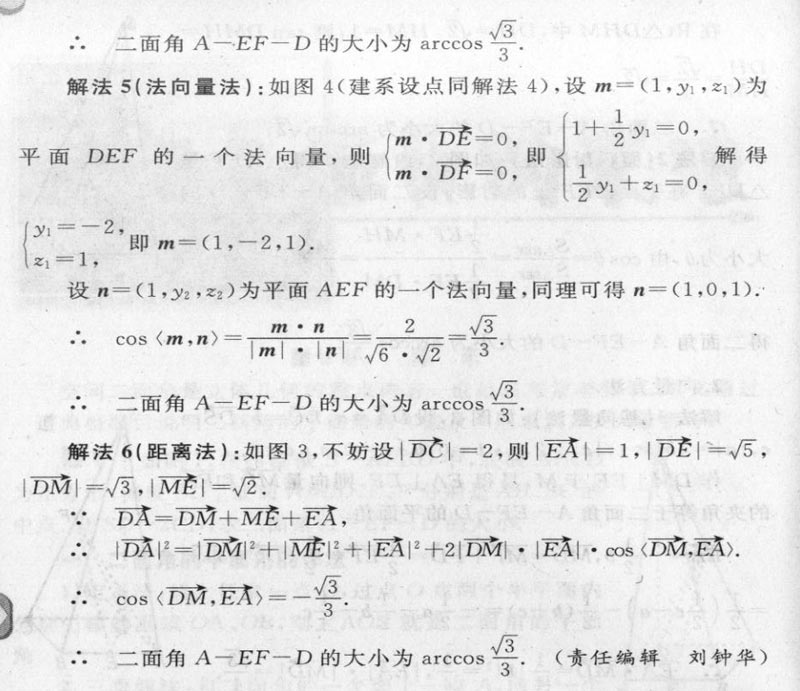 ∴ 二面角 A—EF—D 的大小为 arccos √3/3.
解法 5(法向量法):如图 4(建系设点同解法 4),设 m=(1,y₁,z₁)为
平面 DEF 的一个法向量,则 {m·DE→=0, m·DF→=0, 即 {1+1/2y₁=0, 1/2y₁+z₁=0, 解得
{y₁=-2, z₁=1, 即 m=(1,-2,1).
设 n=(1,y₂,z₂)为平面 AEF 的一个法向量,同理可得 n=(1,0,1).
∴ cos〈m,n〉=m·n/|m|·|n|=2/√6·√2=√3/3.
∴ 二面角 A—EF—D 的大小为 arccos √3/3.
解法 6(距离法):如图 3,不妨设|DC→|=2,则|EA→|=1,|DE→|=√5,
|DM→|=√3,|ME→|=√2.
∵ DA→=DM→+ME→+EA→,
∴ |DA→|²=|DM→|²+|ME→|²+|EA→|²+2|DM→|·|EA→|·cos〈DM→,EA→〉.
∴ cos〈DM→,EA→〉=-√3/3.
∴ 二面角 A—EF—D 的大小为 arccos √3/3. (责任编辑 刘钟华)